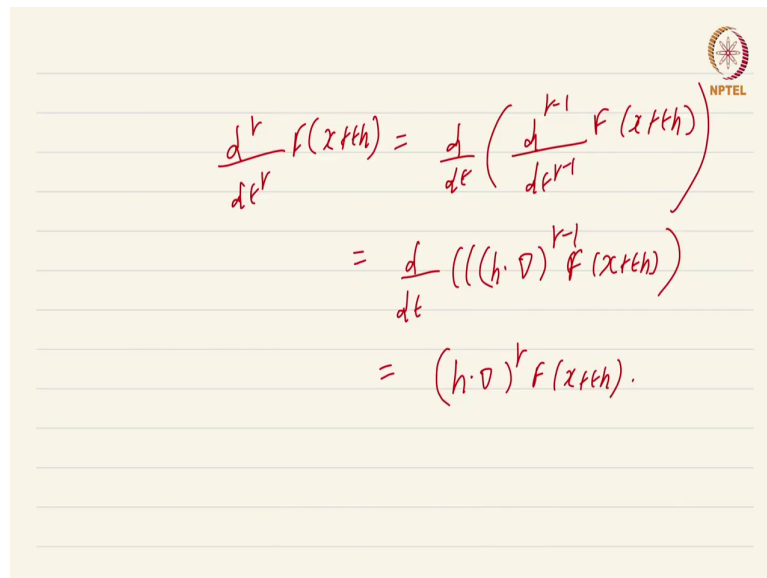 NPTEL
d^r/dt^r F(x+th) = d/dt ( d^{r-1}/dt^{r-1} F(x+th) )
= d/dt (((h·∇)^{r-1} F(x+th))
= (h·∇)^r F(x+th).